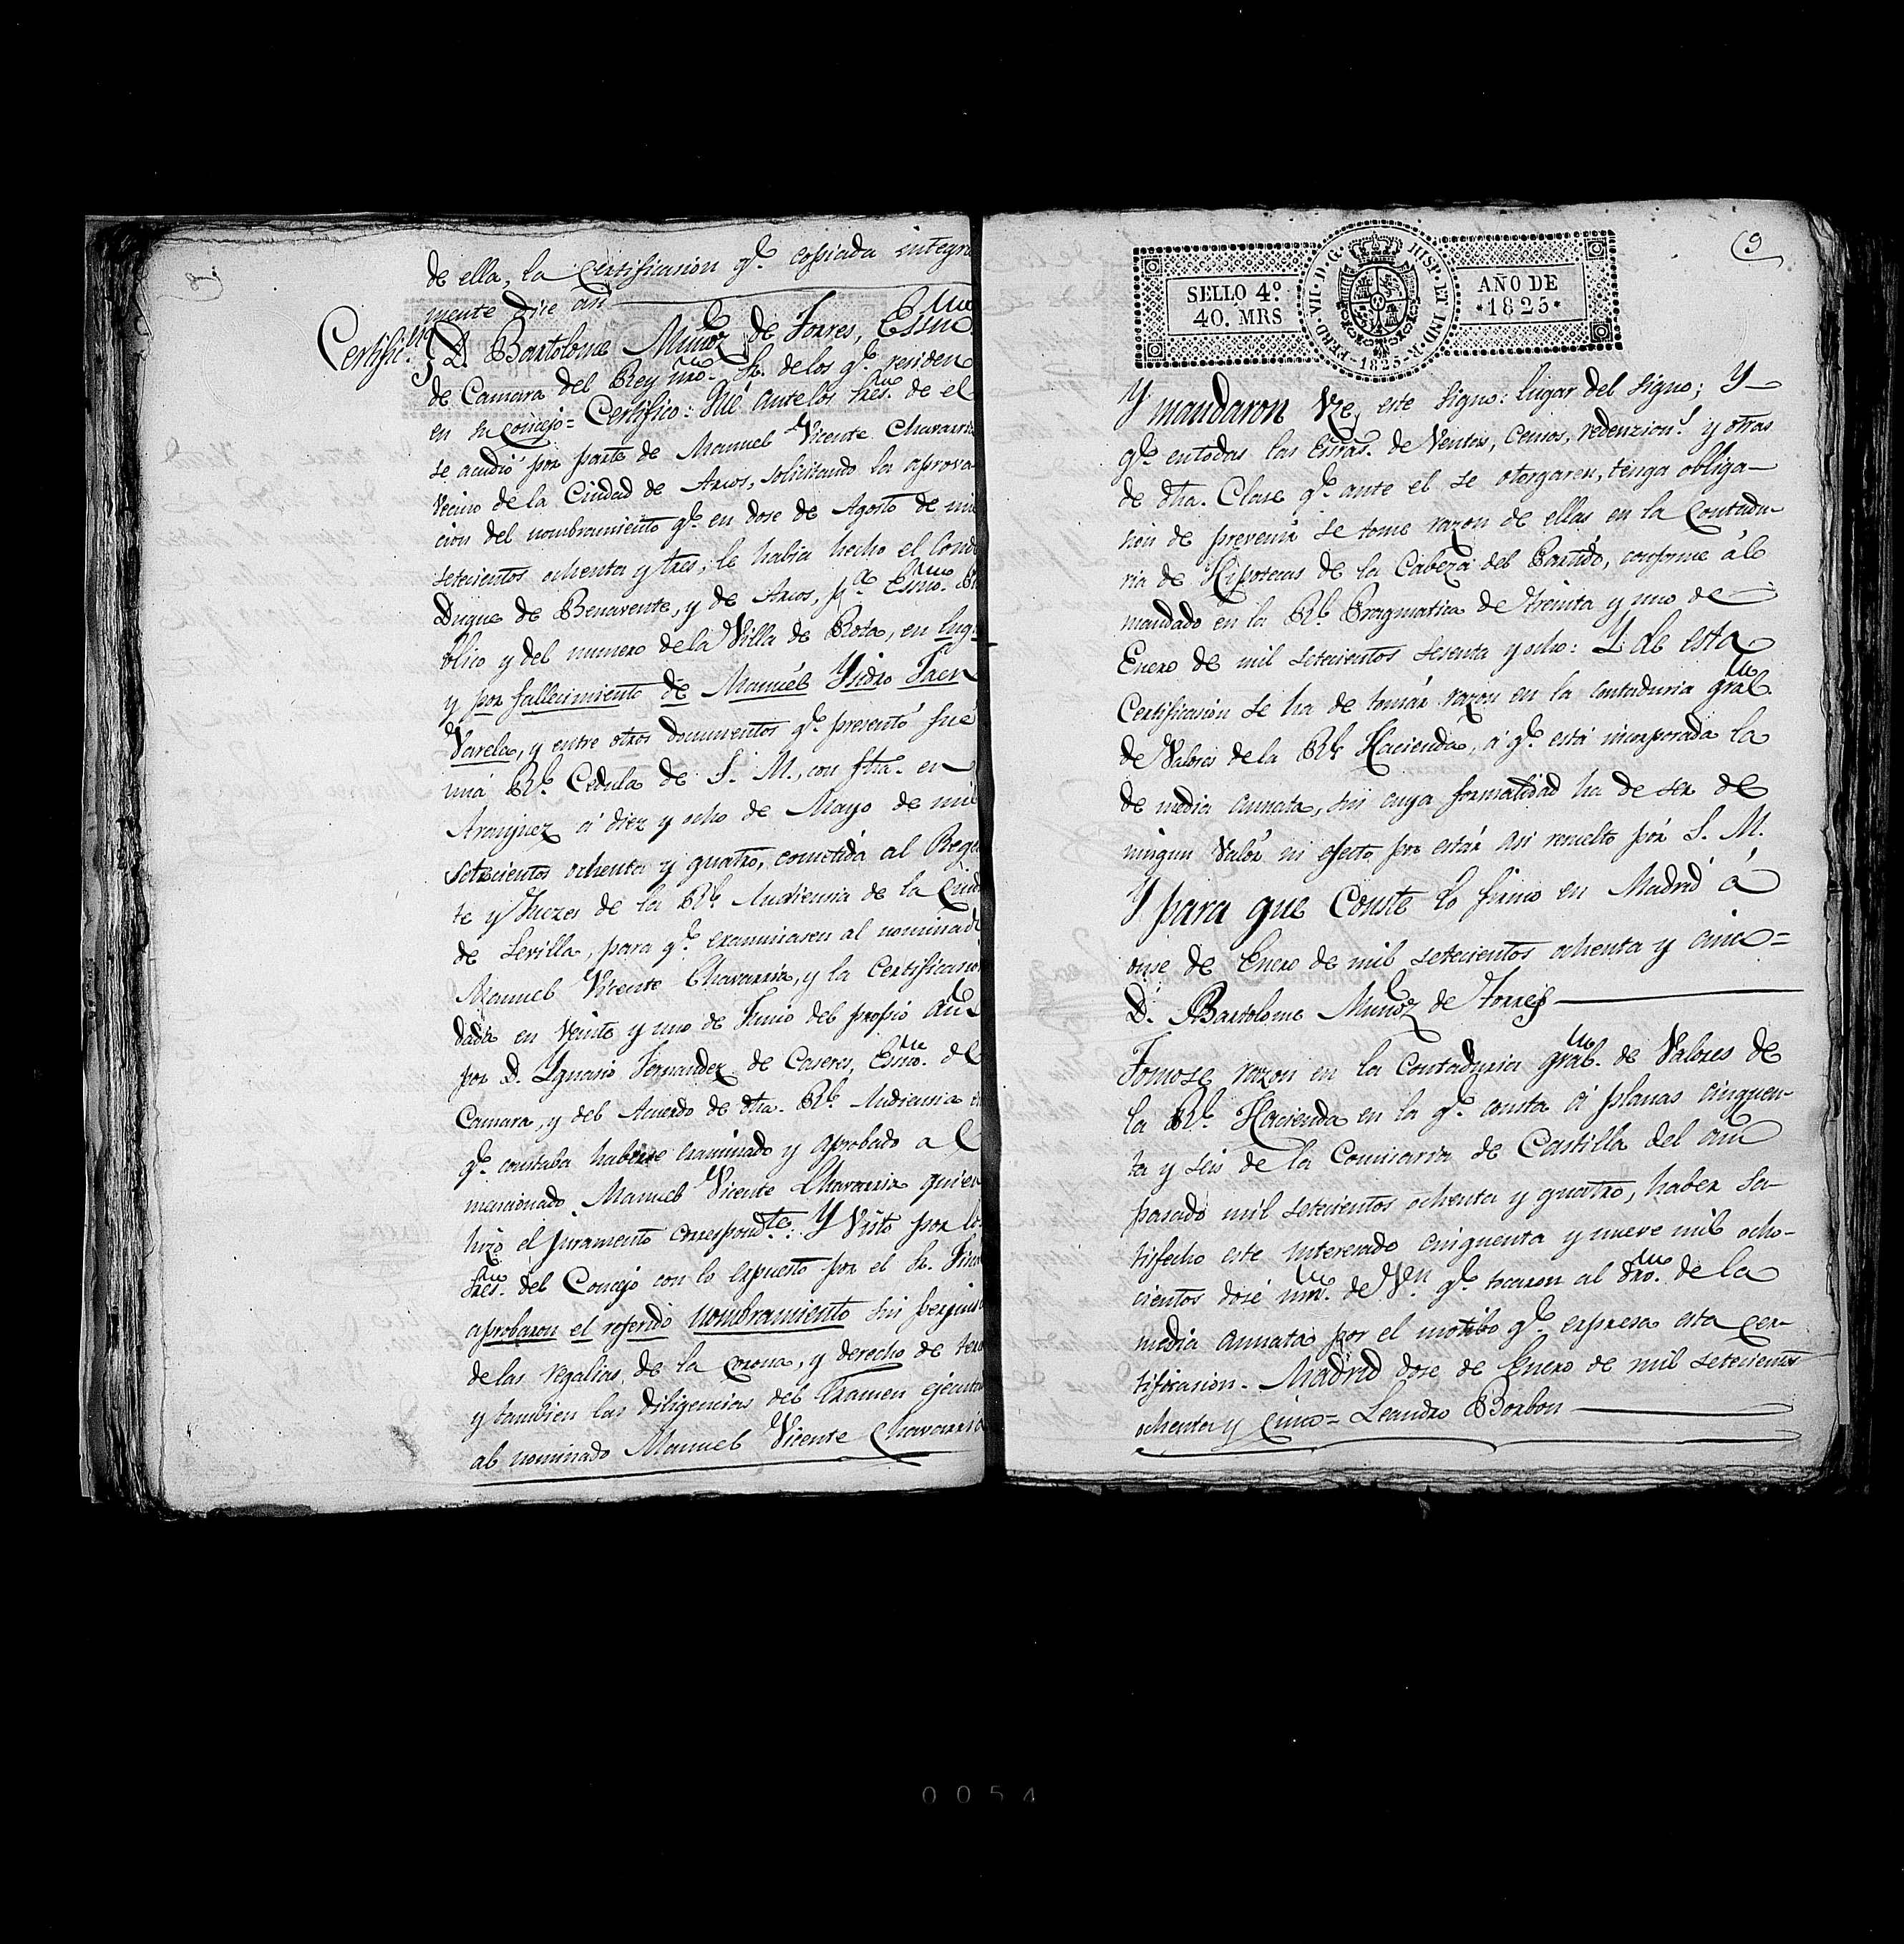 de ella, la Certificacion qe. copiada integra
mente dice asi
Certificn.
D. Bartolome Muñoz de Torres, Essno
de Camara del Rey nro. Sr. de los qe. residen
en su Concejo = Certifico: Qué ante los Sres. de el
se acudió por parte de Manuel Vicente Chavarria
Vecino de la Ciudad de Arcos, solicitando la aprova
cion del nombramiento qe. en dose de Agosto de mil
setecientos ochenta y tres, le habia hecho el Conde
Duque de Benavente, y de Arcos, pa. Essno. Pu
blico y del numero de la Villa de Rota, en lugr
y por fallecimiento de Manuel Ysidro Jaen
Varela, y entre otros documentos qe. presentó fué
una Rl. Cedula de S. M., con fha. en
Aranjuez á diez y ocho de Mayo de mil
setecientos ochenta y quatro, cometida al Regen
te y Juezes de la Rl. Audiencia de la Ciud
de Sevilla, para qe. examinasen al nominado
Manuel Vicente Chavarria, y la Certificacion
dada en Veinte y uno de Junio del propio año
por D. Ygnacio Fernandez de Caseres, Essno. de
Camara, y del Acuerdo de dha. Rl. Audiencia en
qe. constaba haberse examinado y aprobado a el
mencionado Manuel Vicente Chavarria quien
hizo el juramento correspondte.: Y Visto por los
Sres. del Concejo con lo expuesto por el Sr. Fiscal
aprobaron el referido nombramiento sin perjuicio
de las regalias de la Corona, y derecho de terc
y tambien las diligencias del Examen ejecutad
al nominado Manuel Vicente Chavarria
9
SELLO 4º
40. MRS
FERD. VII. D. G. HISP. ET IND. R. 1825
AÑO DE
*1825*
Y mandaron Vze este signo: lugar del signo; Y
qe. en todas las Essras. de Ventas, Censos, redenziones. y otras
de dha. Clase qe. ante el se otorgaren, tenga obliga-
sion de prevenir se tome razon de ellas en la Contadu-
ria de Hipotecas de la Cabeza del Partido, conforme á lo
mandado en la Rl. Pragmatica de treinta y uno de
Enero de mil setecientos sesenta y ocho: Y de esta
Certificasion se ha de tomár razon en la contaduria gral
de Valores de la Rl. Hacienda, á qe. está incorporada la
de media annata, sin cuya formalidad ha de ser de
ningun Valór ni efecto, por estár asi resuelto pór S. M.
Y para que Conste lo firmo en Madrid á
onse de Enero de mil setecientos ochenta y cinco=
D. Bartolome Muñoz de Torres
Tomose razon en la Contaduria gral. de Valores de
la Rl. Hacienda en la qe. consta á planas cinquen-
ta y seis de la Comisaria de Castilla del año
pasado mil setecientos ochenta y quatro, haber sa-
tisfecho este interesado cinquenta y nueve mil ocho-
cientos dosé mrs. de Vn. qe. tocaron al dro. de la
media annata por el motibo qe. expresa esta cer-
tificasion. Madrid dose de Enero de mil setecientos
ochenta y cinco= Leandro Borbon
0054